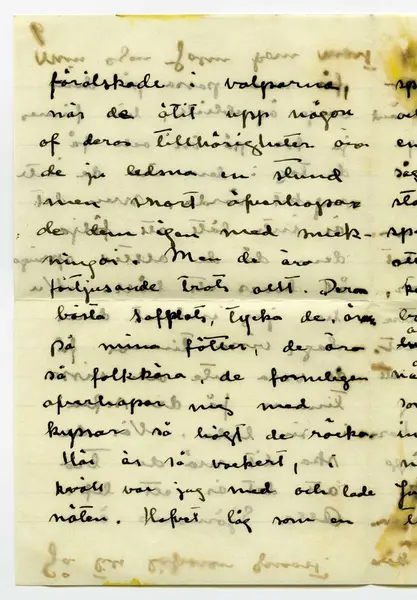 förälskade i valparna,
när de ätit upp någon
af deras tillhörigheter äro
de ju ledsna en stund
men snart öfverhopar
de dem igen med smek-
ningar. Men de äro
förtjusande trots allt. Deras
bästa sofplats, tycka de, är
på mina fötter, de äro
så folkkära, de formligen
öfverhopar mig med
kyssar så högt de räcker
Här är så vackert, i
kväll var jag med och lade
näten. Hafvet låg som en